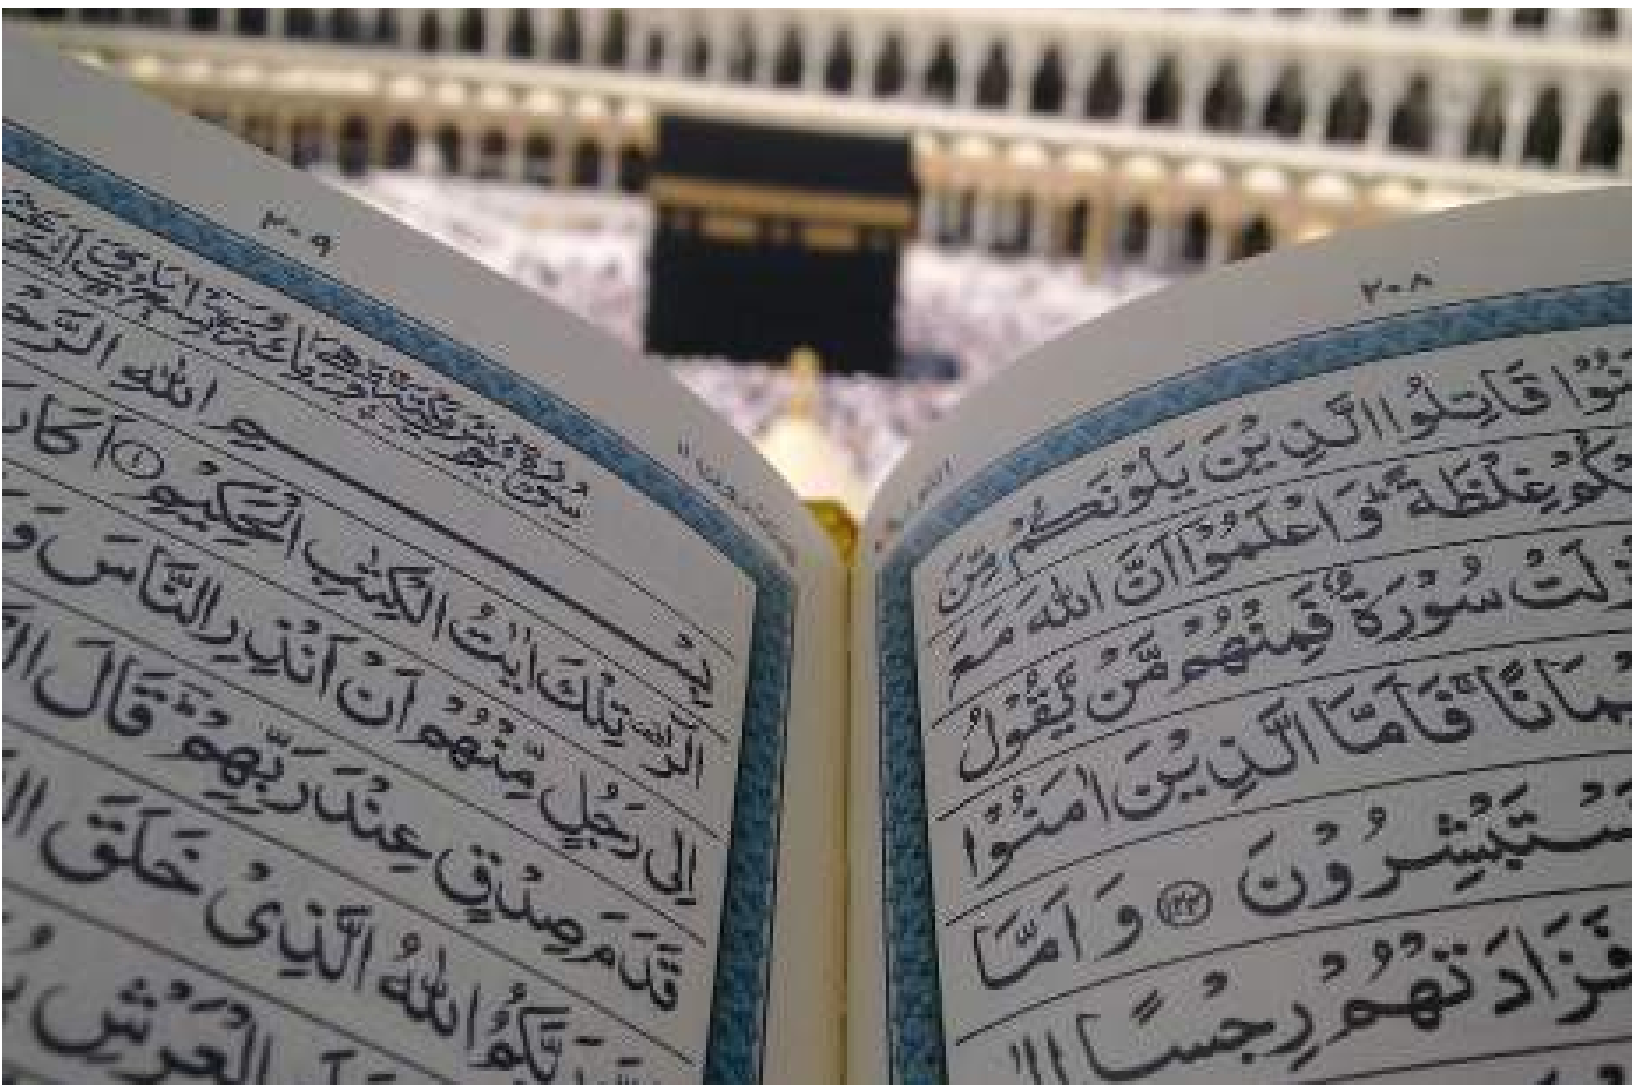 ٢٠٨
نُوْا قَاتِلُوا الَّذِيْنَ يَلُوْنَكُمْ مِّنَ
كُمْ غِلْظَةً ؕ وَاعْلَمُوْۤا اَنَّ اللّٰهَ مَعَ
زِلَتْ سُوْرَةٌ فَمِنْهُمْ مَّنْ يَّقُوْلُ
يْمَانًا ۚ فَاَمَّا الَّذِيْنَ اٰمَنُوْا
سْتَبْشِرُوْنَ ﴿١٢٤﴾ وَاَمَّا
فَزَادَتْهُمْ رِجْسًا
٢٠٩
سُوْرَةُ يُوْنُسَ مَكِّيَّةٌ وَّهِيَ مِائَةٌ
بِسْمِ اللّٰهِ
الٓرٰ ۚ تِلْكَ اٰيٰتُ الْكِتٰبِ الْحَكِيْمِ ﴿١﴾ اَكَانَ
اِلٰى رَجُلٍ مِّنْهُمْ اَنْ اَنْذِرِ النَّاسَ وَ
قَدَمَ صِدْقٍ عِنْدَ رَبِّهِمْ ؔ قَالَ
رَبَّكُمُ اللّٰهُ الَّذِىْ خَلَقَ
الْعَرْشِ